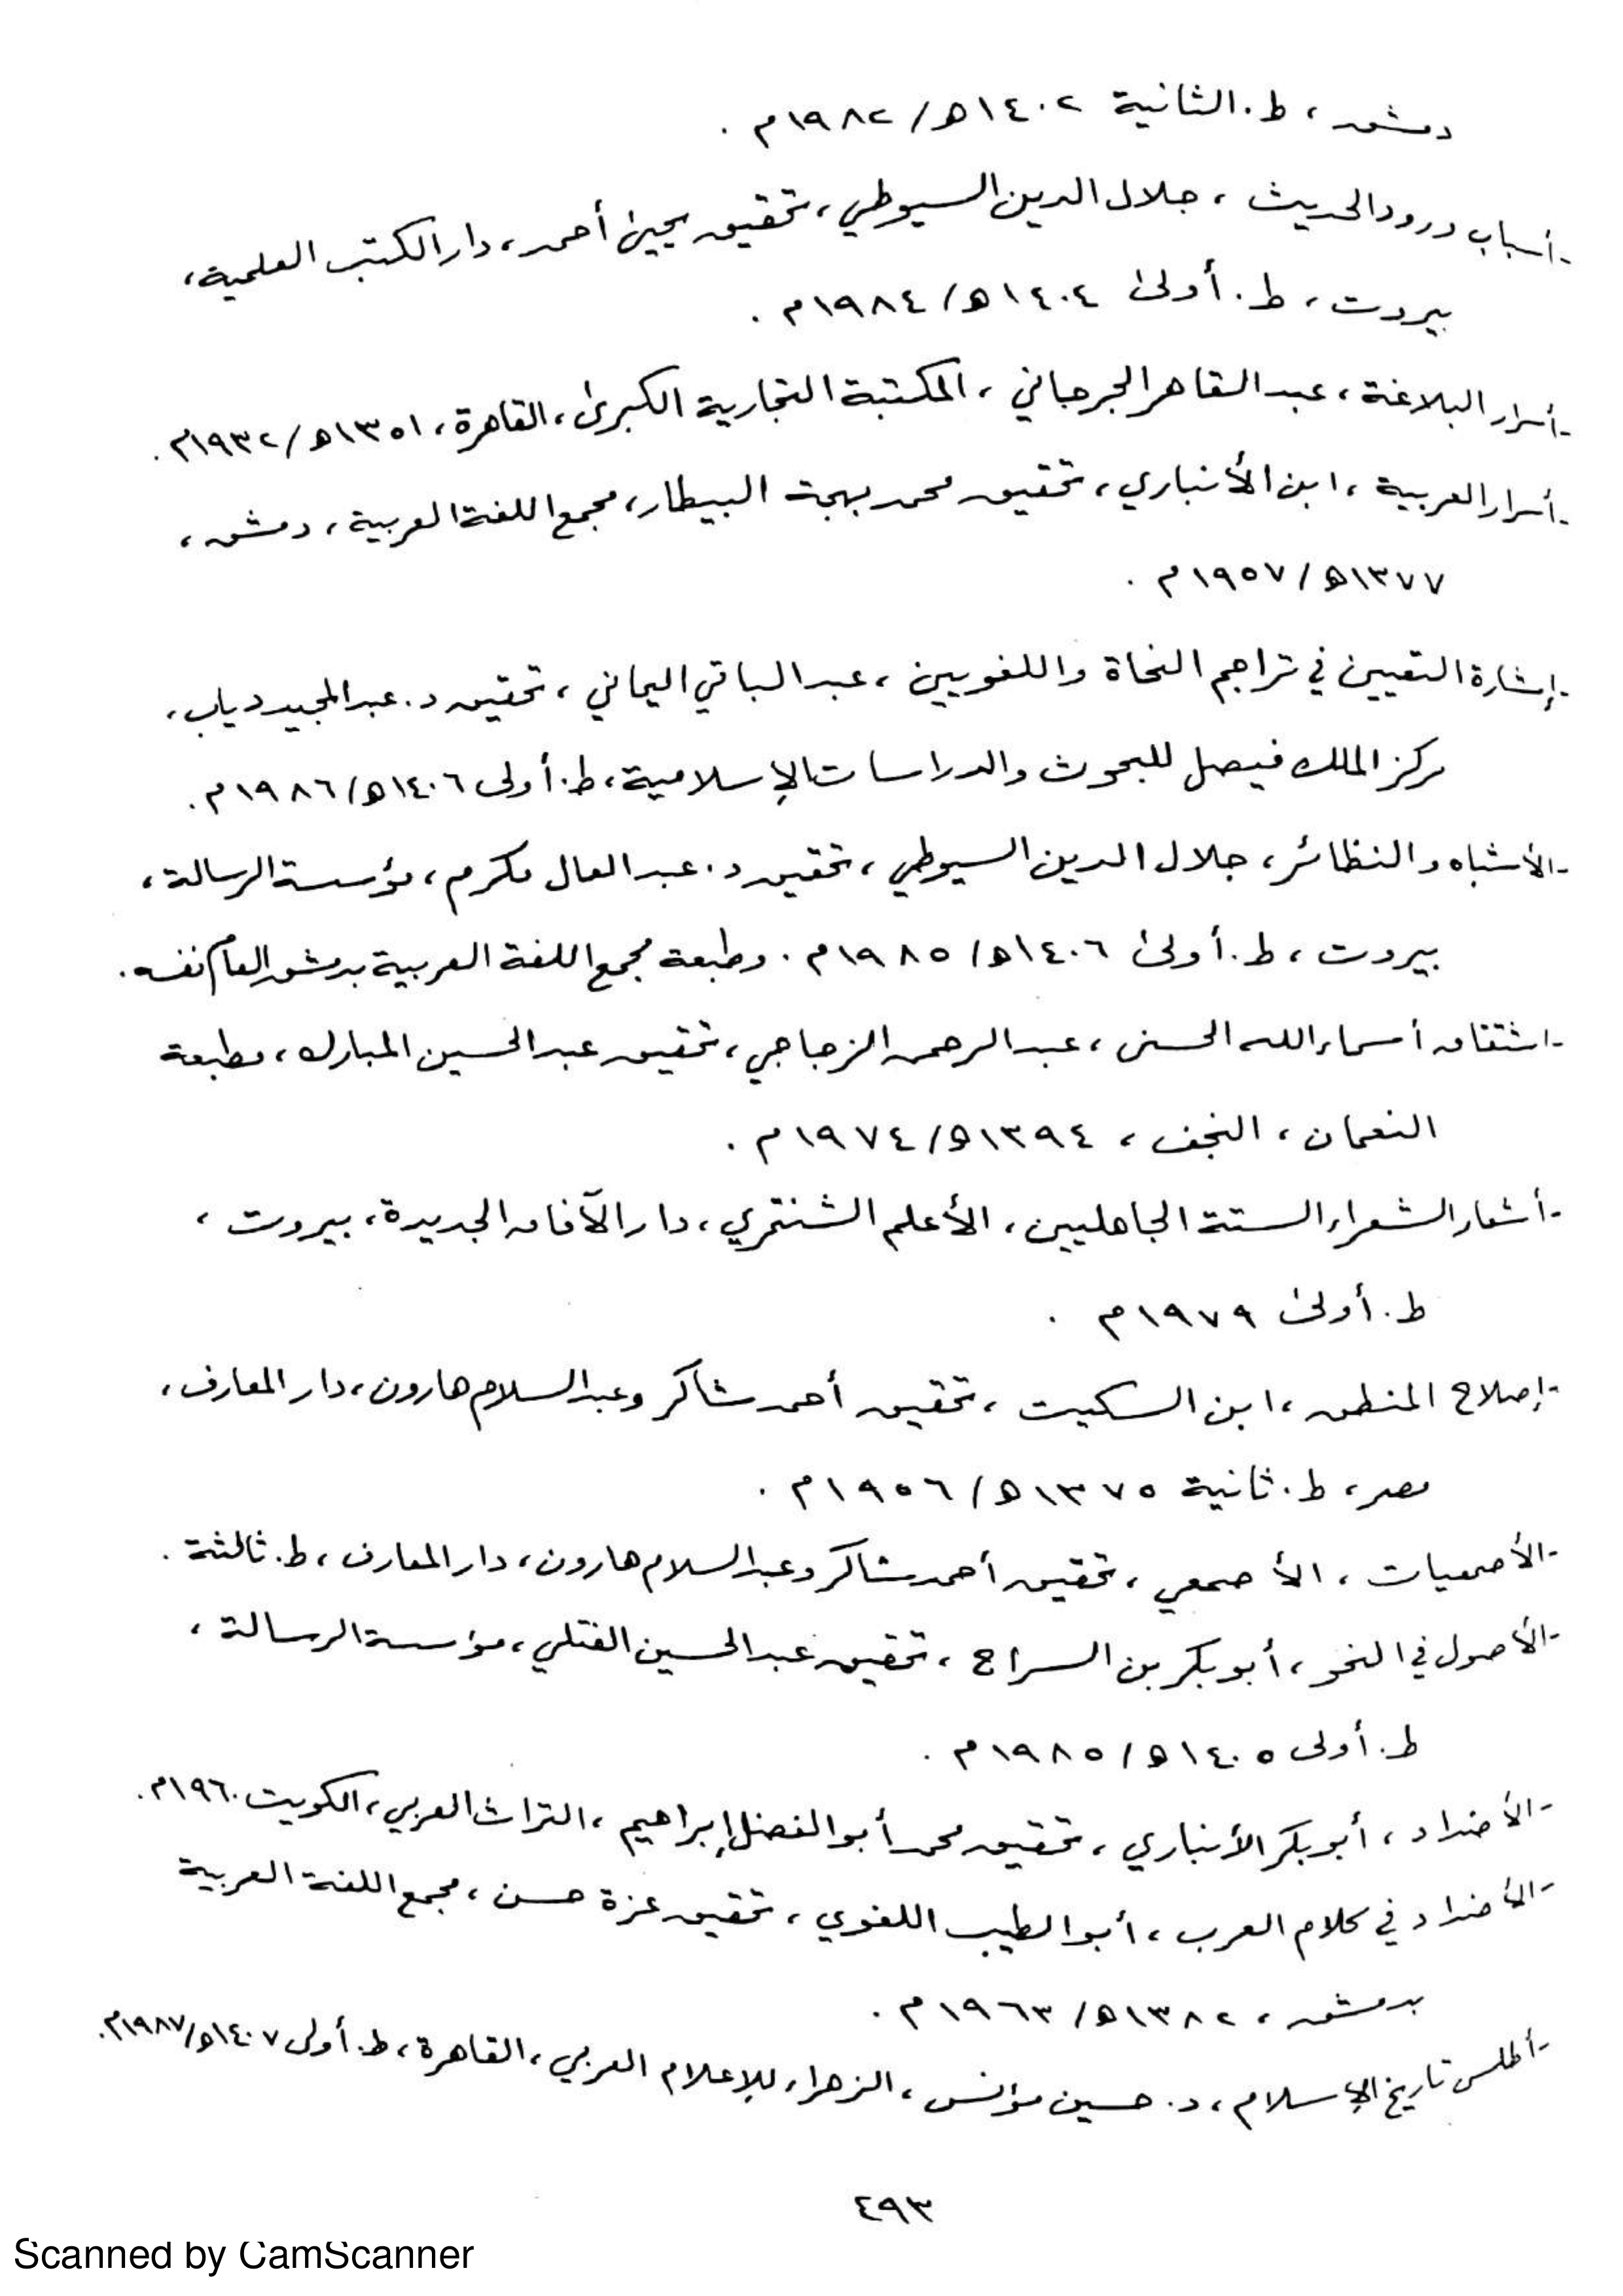 دمشق ، ط. الثانية ١٤٠٢هـ/ ١٩٨٢م .
-أسباب ورود الحديث ، جلال الدين السيوطي ، تحقيق يحيىٰ أحمد ، دار الكتب العلمية ،
بيروت ، ط. أولىٰ ١٤٠٤هـ/ ١٩٨٤م .
-أسرار البلاغة ، عبد القاهر الجرجاني ، المكتبة التجارية الكبرىٰ ، القاهرة ، ١٣٥١هـ/ ١٩٣٢م .
-أسرار العربية ، ابن الأنباري ، تحقيق محمد بهجت البيطار ، مجمع اللغة العربية ، دمشق ،
١٣٧٧هـ/ ١٩٥٧م .
-إشارة التعيين في تراجم النحاة واللغويين ، عبد الباقي اليماني ، تحقيق د. عبد المجيد دياب ،
مركز الملك فيصل للبحوث والدراسات الإسلامية ، ط. أولى ١٤٠٦هـ/ ١٩٨٦م .
-الأشباه والنظائر ، جلال الدين السيوطي ، تحقيق د. عبد العال مكرم ، مؤسسة الرسالة ،
بيروت ، ط. أولىٰ ١٤٠٦هـ/ ١٩٨٥م . وطبعة مجمع اللغة العربية بدمشق العام نفسه .
-اشتقاق أسماء الله الحسنى ، عبد الرحمن الزجاجي ، تحقيق عبد الحسين المبارك ، مطبعة
النعمان ، النجف ، ١٣٩٤هـ/ ١٩٧٤م .
-أشعار الشعراء الستة الجاهليين ، الأعلم الشنتمري ، دار الآفاق الجديدة ، بيروت ،
ط. أولىٰ ١٩٧٩م .
-إصلاح المنطق ، ابن السكيت ، تحقيق أحمد شاكر وعبد السلام هارون ، دار المعارف ،
مصر ، ط. ثانية ١٣٧٥هـ/ ١٩٥٦م .
-الأصمعيات ، الأصمعي ، تحقيق أحمد شاكر وعبد السلام هارون ، دار المعارف ، ط. ثالثة .
-الأصول في النحو ، أبو بكر بن السراج ، تحقيق عبد الحسين الفتلي ، مؤسسة الرسالة ،
ط. أولى ١٤٠٥هـ/ ١٩٨٥م .
-الأضداد ، أبو بكر الأنباري ، تحقيق محمد أبو الفضل إبراهيم ، التراث العربي ، الكويت ١٩٦٠م .
-الأضداد في كلام العرب ، أبو الطيب اللغوي ، تحقيق عزة حسن ، مجمع اللغة العربية
بدمشق ، ١٣٨٢هـ/ ١٩٦٣م .
-أطلس تاريخ الإسلام ، د. حسين مؤنس ، الزهراء للإعلام العربي ، القاهرة ، ط. أولى ١٤٠٧هـ/ ١٩٨٧م .
٤٩٣
Scanned by CamScanner